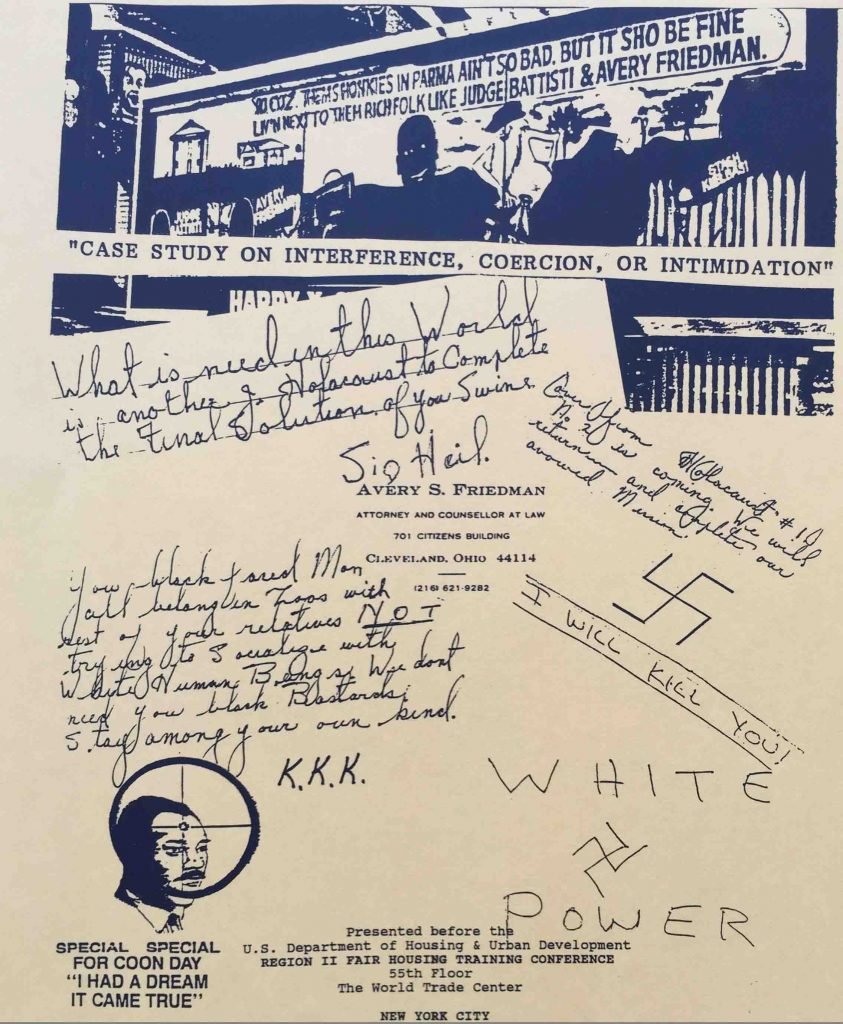 YO COZ. THEM'S HONKIES IN PARMA AIN'T SO BAD, BUT IT SHO BE FINE
LIV'N NEXT TO THEM RICH FOLK LIKE JUDGE BATTISTI & AVERY FRIEDMAN.
JUDGE
AVERY
STASH
"CASE STUDY ON INTERFERENCE, COERCION, OR INTIMIDATION"
HAPPY
What is need in this World
is another Holacaust to Complete
the Final Solution of you Swine
Sig Heil.
Holacaust #1
No. 2 is coming. We will
return and complete our
avowed Mission.
AVERY S. FRIEDMAN
ATTORNEY AND COUNSELLOR AT LAW
701 CITIZENS BUILDING
CLEVELAND, OHIO 44114
(216) 621-9282
I WILL KILL YOU!
You black
all belong in Zoos with
rest of your relatives NOT
trying to Socialize with
White Human Beings. We dont
need you black Bastards.
Stay among your own kind.
K.K.K.
WHITE
POWER
SPECIAL SPECIAL
FOR COON DAY
"I HAD A DREAM
IT CAME TRUE"
Presented before the
U.S. Department of Housing & Urban Development
REGION II FAIR HOUSING TRAINING CONFERENCE
55th Floor
The World Trade Center
NEW YORK CITY